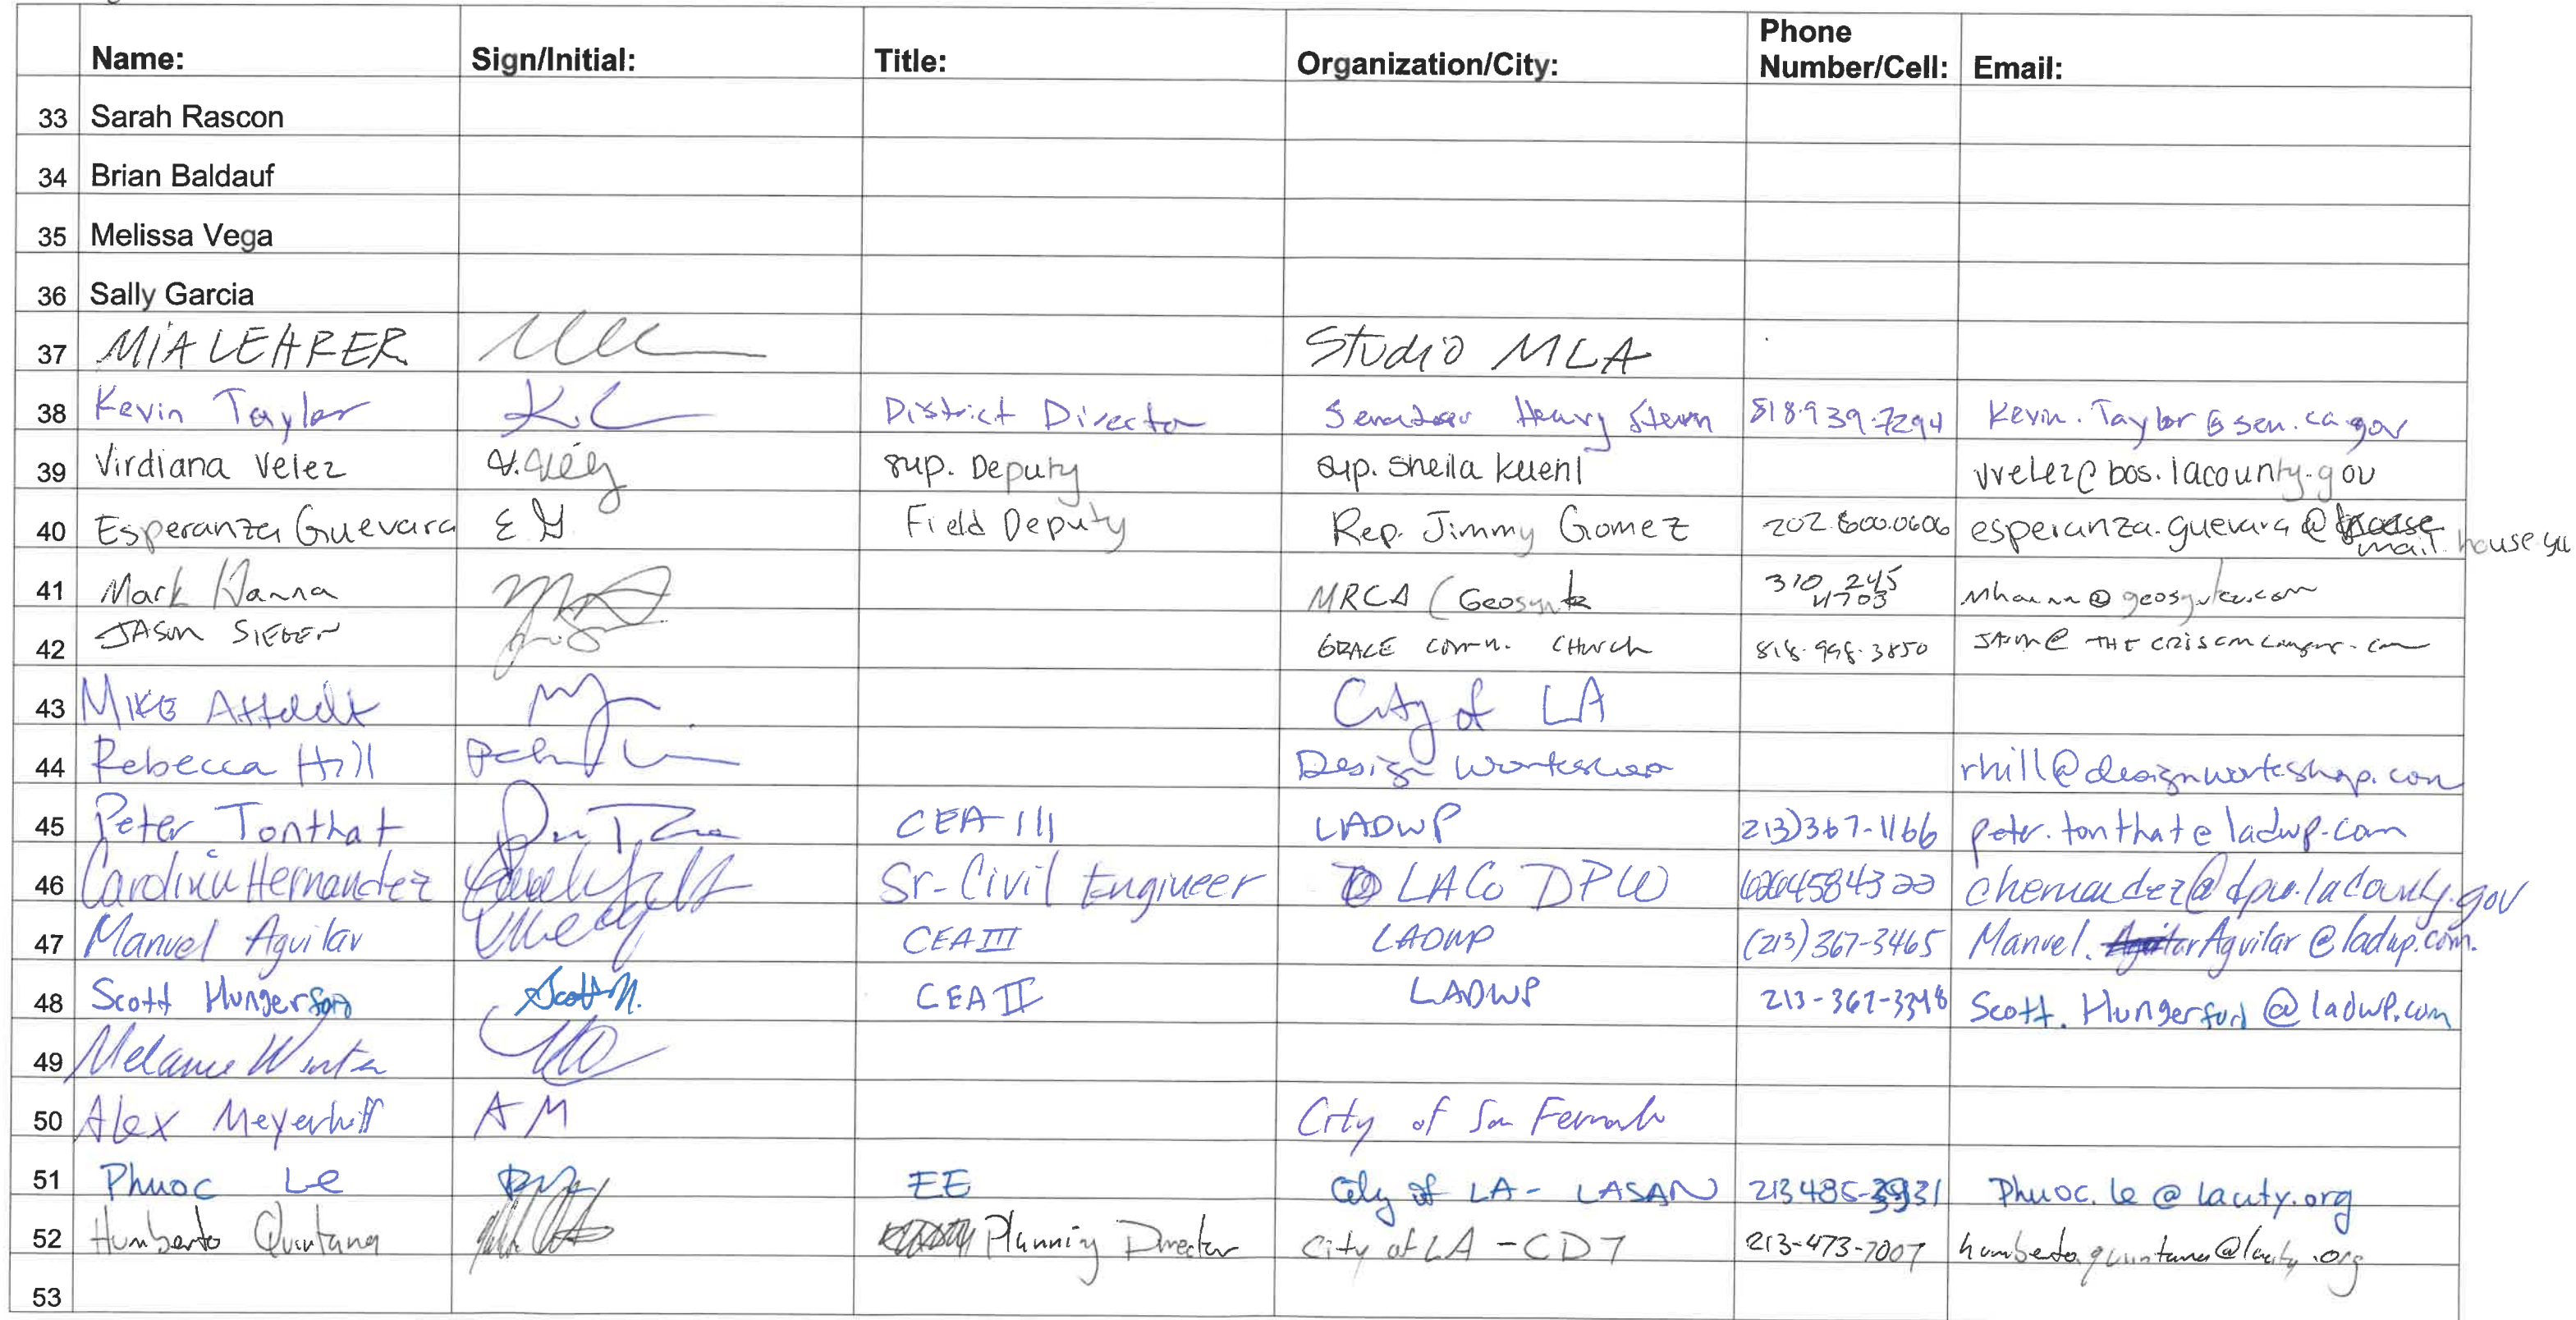 Name: Sign/Initial: Title: Organization/City: Phone Number/Cell: Email:
33 Sarah Rascon
34 Brian Baldauf
35 Melissa Vega
36 Sally Garcia
37 MIA LEHRER Studio MLA
38 Kevin Taylor District Director Senator Henry Stern 818.939.7294 Kevin.Taylor@sen.ca.gov
39 Virdiana Velez V.Velez sup. Deputy sup. Sheila Kuenl vvelez@bos.lacounty.gov
40 Esperanza Guevara E G. Field Deputy Rep. Jimmy Gomez 202.600.0606 esperanza.guevara@mail.house
41 Mark Hanna MRCA (Geosyntec 310 245 4703
42 JASON SIEBER GRACE comm. CHurch 818.998.3850
43 MIKE City of LA
44 Rebecca Hill Design Workshop rhill@designworkshop.com
45 Peter Tonthat CEA III LADWP 213)367-1166 peter.tonthat@ladwp.com
46 Carolina Hernandez Sr-Civil Engineer LACo DPW 6264584322 chernandez@dpw.lacounty.gov
47 Manuel Aguilar CEA III LADWP (213)367-3465 Manuel.Aguilar@ladwp.com.
48 Scott Hungerford Scott H. CEA II LADWP Scott.Hungerford@ladwp.com
49 Melanie Winter
50 Alex Meyerhoff AM City of San Fernando
51 Phuoc Le EE City of LA - LASAN Phuoc.le@lacity.org
52 Humberto Quintana Planning Director City of LA - CD7 213-473-7007 humberto.quintana@lacity.org
53